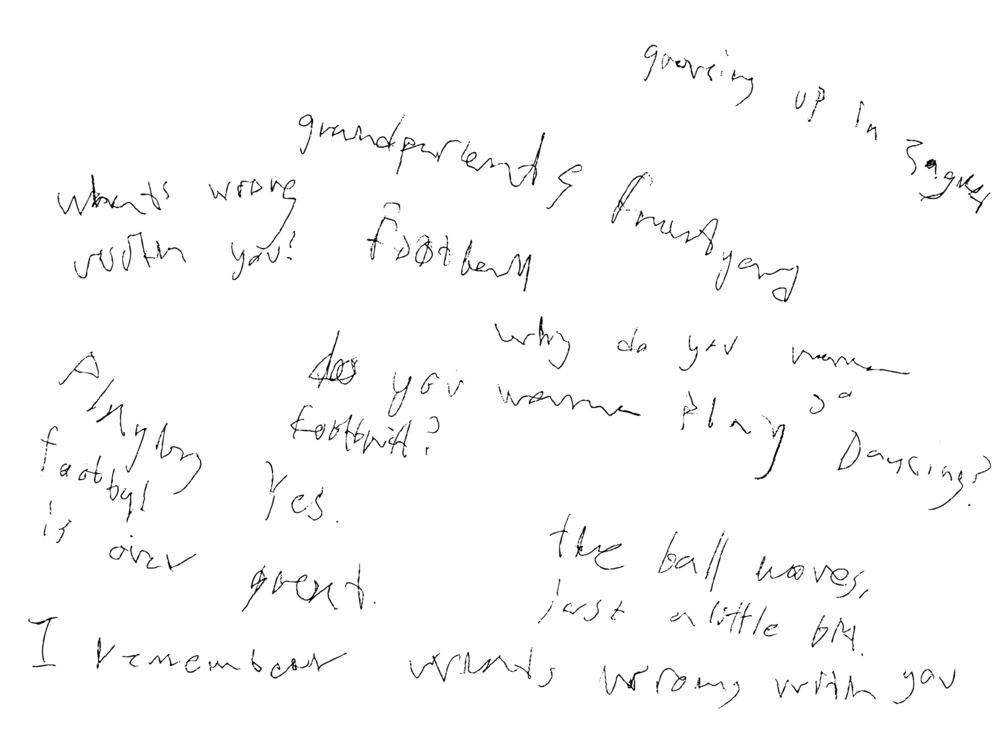 growing up in Zagreb
grandparents frontyard
whats wrong
with you?
football
why do you wanna
go Dancing?
do you wanna play
football?
Yes.
Playing
football
is over
great.
the ball moves,
just a little bit.
I remember whats wrong with you